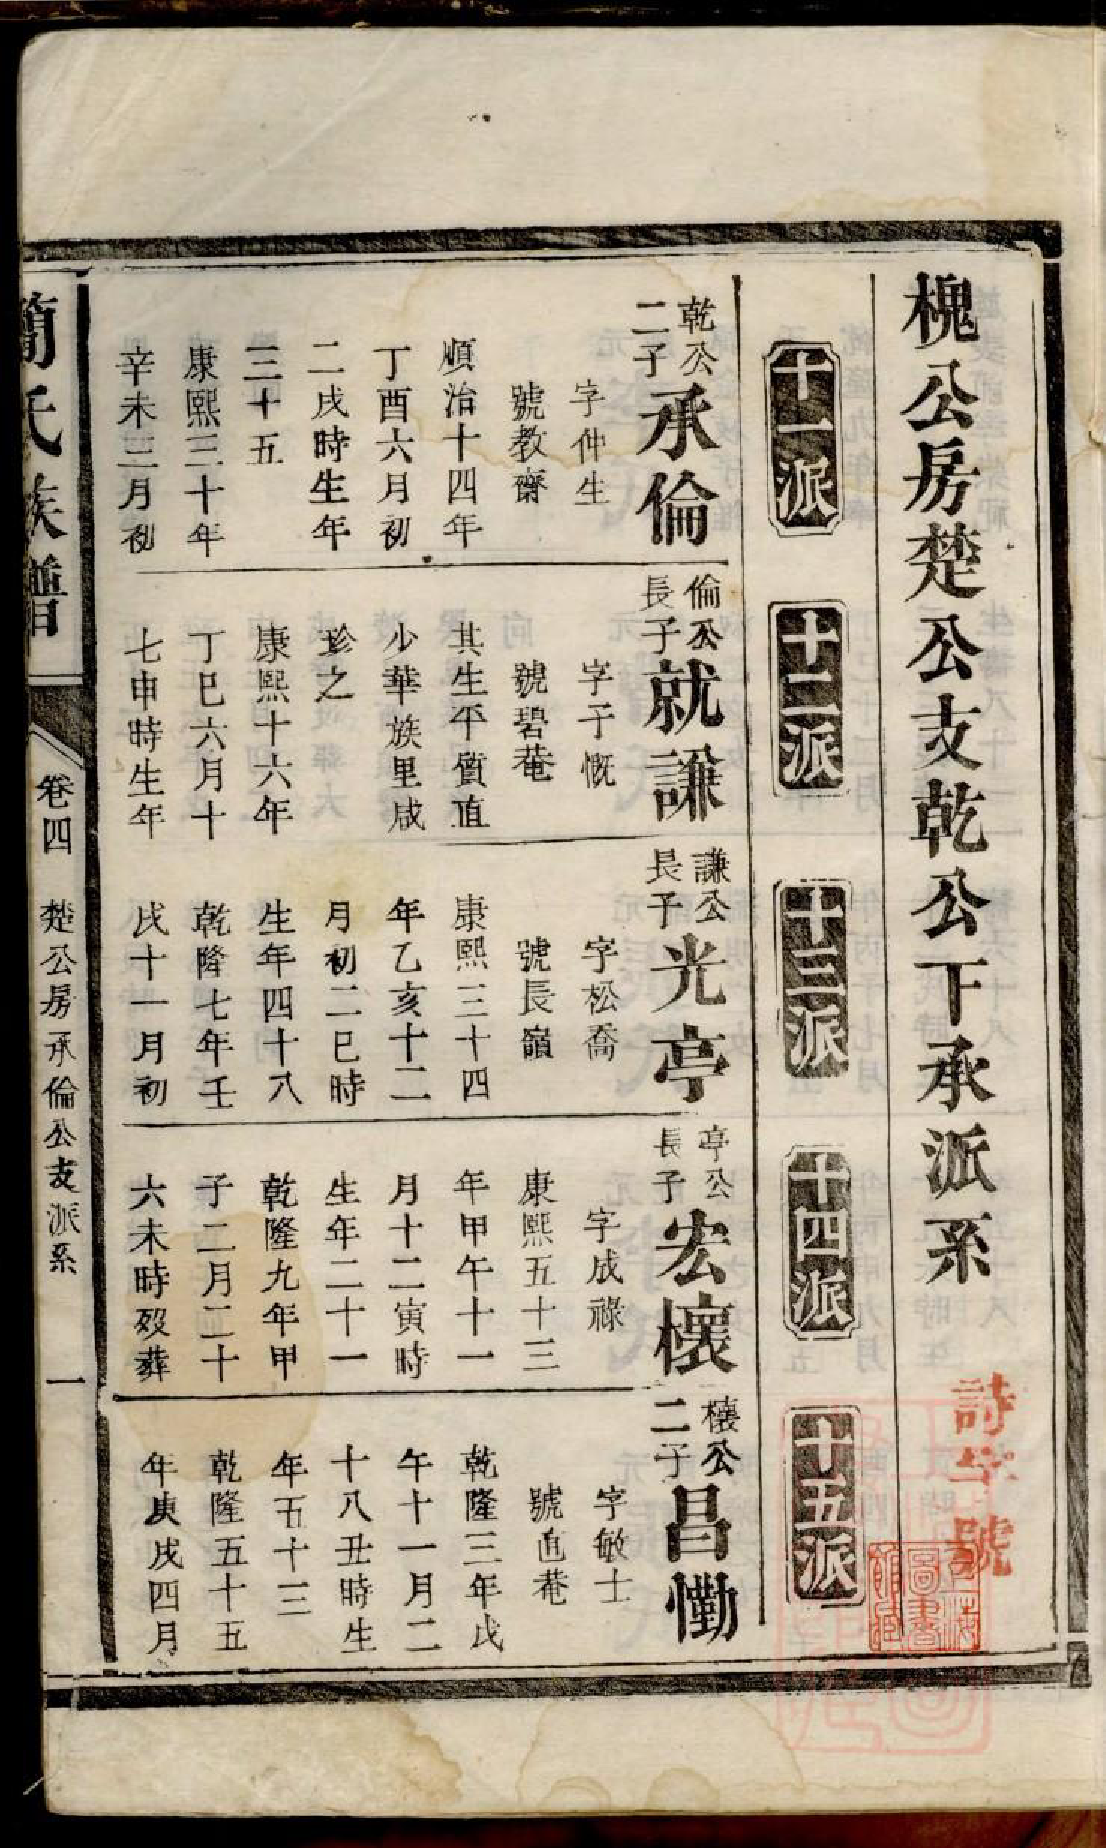 槐公房楚公支乾公下承派系
詩字號
上海圖書館藏
十一派
十二派
十三派
十四派
十五派
乾公
二子
承倫
字仲生
號教齋
順治十四年
丁酉六月初
二戌時生年
三十五
康熙三十年
辛未三月初
倫公
長子
就謙
字子慨
號碧菴
其生平質直
少華族里咸
珍之
康熙十六年
丁巳六月十
七申時生年
謙公
長子
光亭
字松喬
號長嶺
康熙三十四
年乙亥十二
月初二巳時
生年四十八
乾隆七年壬
戌十一月初
亭公
長子
宏櫰
字成祿
康熙五十三
年甲午十一
月十二寅時
生年二十一
乾隆九年甲
子二月二十
六未時歿葬
櫰公
二子
昌懃
字敏士
號直菴
乾隆三年戊
午十一月二
十八丑時生
年五十三
乾隆五十五
年庚戌四月
簡氏族譜
卷四
楚公房承倫公支派系
一